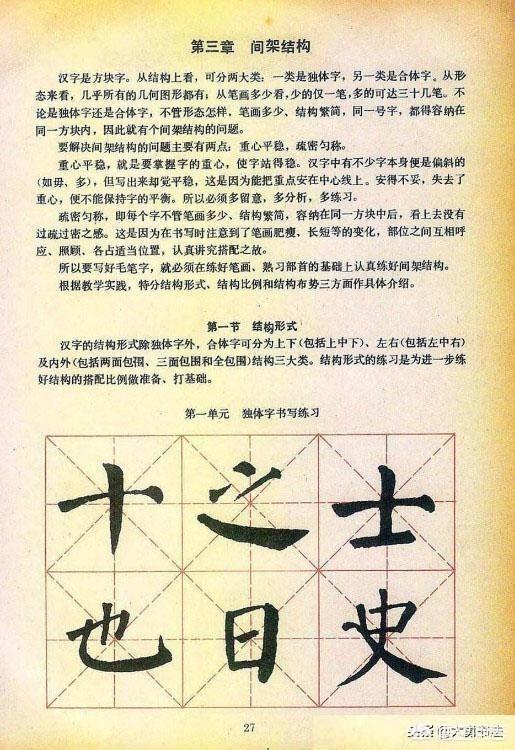 第三章 间架结构
汉字是方块字。从结构上看，可分两大类：一类是独体字，另一类是合体字。从形
态来看，几乎所有的几何图形都有；从笔画多少看，少的仅一笔，多的可达三十几笔。不
论是独体字还是合体字，不管形态怎样，笔画多少、结构繁简，同一号字，都得容纳在
同一方块内，因此就有个间架结构的问题。
要解决间架结构的问题主要有两点：重心平稳，疏密匀称。
重心平稳，就是要掌握字的重心，使字站得稳。汉字中有不少字本身便是偏斜的
(如毋、多)，但写出来却觉平稳，这是因为能把重点安在中心线上。安得不妥，失去了
重心，便不能保持字的平衡。所以必须多留意，多分析，多练习。
疏密匀称，即每个字不管笔画多少、结构繁简，容纳在同一方块中后，看上去没有
过疏过密之感。这是因为在书写时注意到了笔画肥瘦、长短等的变化，部位之间互相呼
应、照顾、各占适当位置，认真讲究搭配之故。
所以要写好毛笔字，就必须在练好笔画、熟习部首的基础上认真练好间架结构。
根据教学实践，特分结构形式、结构比例和结构布势三方面作具体介绍。
第一节 结构形式
汉字的结构形式除独体字外，合体字可分为上下(包括上中下)、左右(包括左中右)
及内外(包括两面包围、三面包围和全包围)结构三大类。结构形式的练习是为进一步练
好结构的搭配比例做准备、打基础。
第一单元 独体字书写练习
十之士
也日史
27